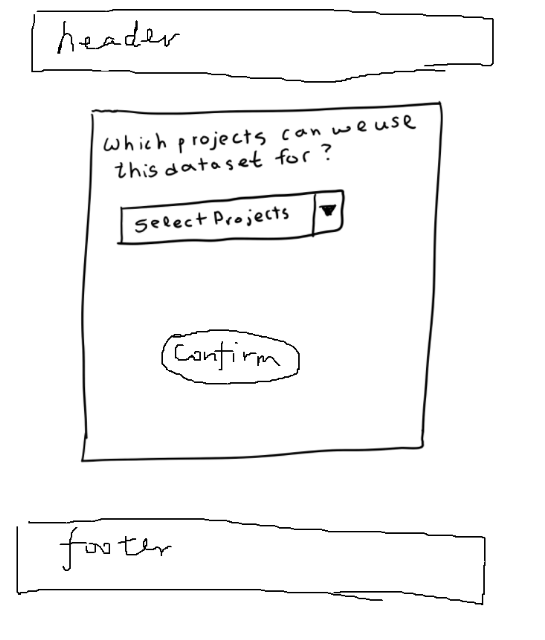 header
Which projects can we use
this dataset for?
Select Projects
Confirm
footer